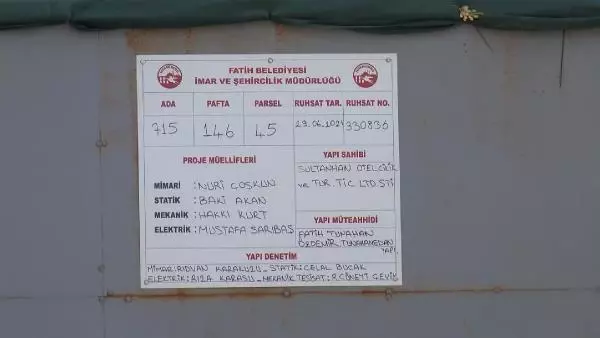 FATİH BELEDİYESİ
İMAR VE ŞEHİRCİLİK MÜDÜRLÜĞÜ
ADA PAFTA PARSEL RUHSAT TAR. RUHSAT NO.
715 146 45 29.06.2021 330836
PROJE MÜELLİFLERİ
MİMARİ : NURİ COŞKUN
STATİK : BAKİ AKAN
MEKANİK : HAKKI KURT
ELEKTRİK : MUSTAFA SARIBAŞ
YAPI SAHİBİ
SULTANHAN OTELCİLİK
ve TUR. TİC LTD. ŞTİ
YAPI MÜTEAHHİDİ
FATİH TUNAHAN
ÖZDEMİR
YAPI.
YAPI DENETİM
MİMAR: RIDVAN KARAKUZU - STATİK: CELAL BUCAK
ELEKTRİK: RIZA KARASU - MEKANİK TESİSAT: R. CÜNEYT ÇEVİK